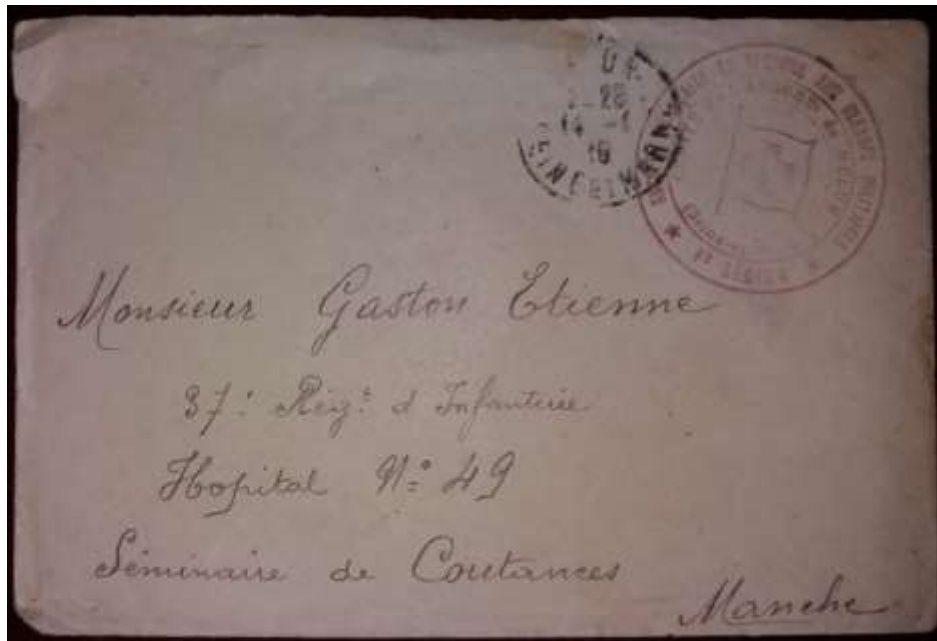 28
14 -1
16
SEINE ET MARNE
SECOURS AUX BLESSÉS MILITAIRES
Monsieur Gaston Etienne
37: Régt d Infanterie
Hopital N° 49
Séminaire de Coutances
Manche